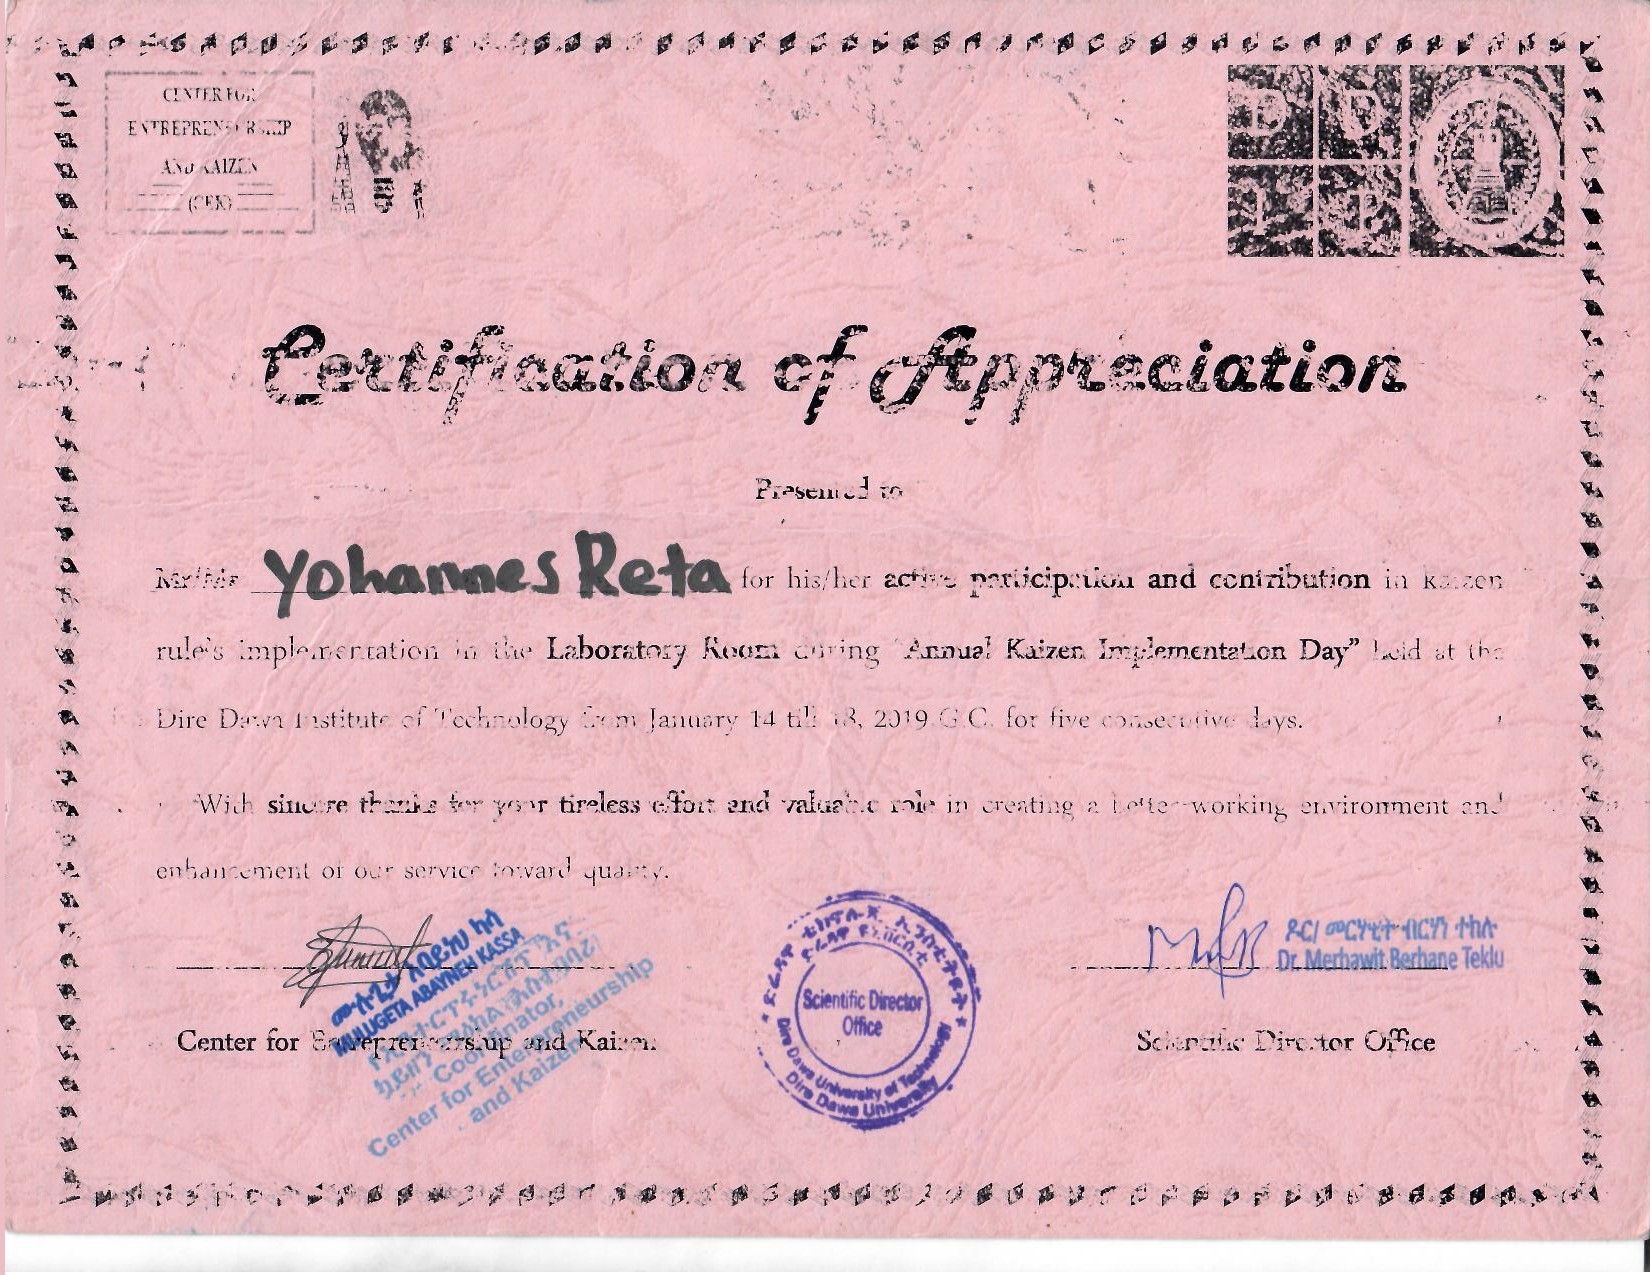 CENTER FOR
ENTREPRENEURSHIP
AND KAIZEN
(CEK)
DDIT
Certification of Appreciation
Presented to
Mr/Ms Yohannes Reta for his/her active participation and contribution in kaizen
rule's implementation in the Laboratory Room during "Annual Kaizen Implementation Day" held at the
Dire Dawa Institute of Technology from January 14 till 18, 2019 G.C. for five consecutive days.
With sincere thanks for your tireless effort and valuable role in creating a better working environment and
enhancement of our service toward quality.
MULUGETA ABAYNEH KASSA
Coordinator,
Center for Entrepreneurship
and Kaizen
Center for Entrepreneurship and Kaizen
Scientific Director
Office
Dire Dawa University of Technology
Dire Dawa University
ዶ/ር መርሃዊት ብርሃነ ተክሉ
Dr. Merhawit Berhane Teklu
Scientific Director Office